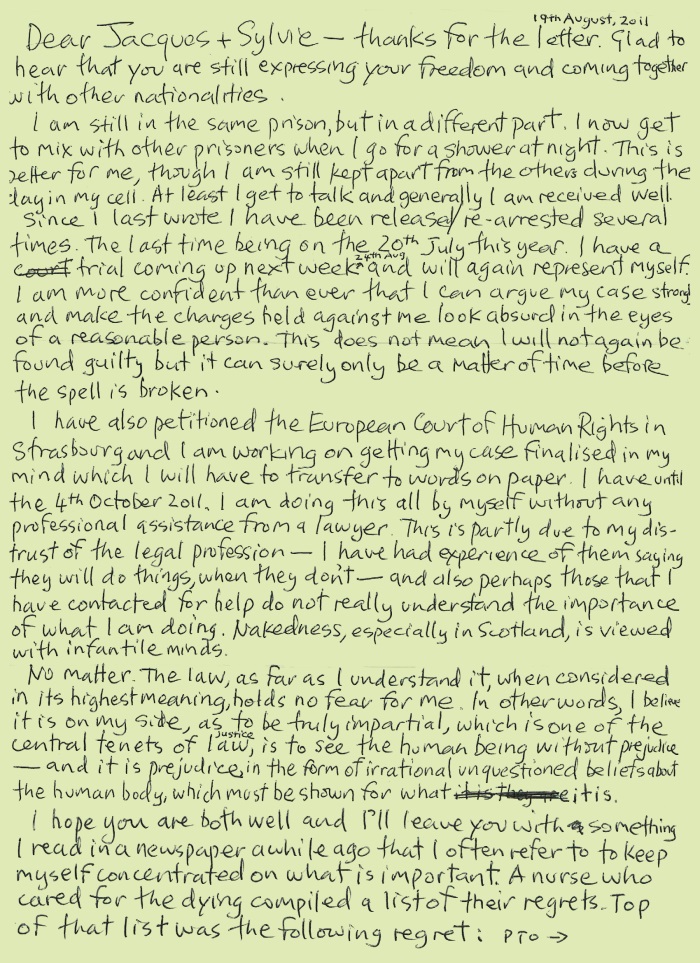 19th August, 2011
Dear Jacques + Sylvie — thanks for the letter. Glad to
hear that you are still expressing your freedom and coming together
with other nationalities.
I am still in the same prison, but in a different part. I now get
to mix with other prisoners when I go for a shower at night. This is
better for me, though I am still kept apart from the others during the
day in my cell. At least I get to talk and generally I am received well.
Since I last wrote I have been released/re-arrested several
times. The last time being on the 20th July this year. I have a
court trial coming up next week 24th Aug and will again represent myself.
I am more confident than ever that I can argue my case strong
and make the charges held against me look absurd in the eyes
of a reasonable person. This does not mean I will not again be
found guilty but it can surely only be a matter of time before
the spell is broken.
I have also petitioned the European Court of Human Rights in
Strasbourg and I am working on getting my case finalised in my
mind which I will have to transfer to words on paper. I have until
the 4th October 2011. I am doing this all by myself without any
professional assistance from a lawyer. This is partly due to my dis-
trust of the legal profession — I have had experience of them saying
they will do things, when they don't — and also perhaps those that I
have contacted for help do not really understand the importance
of what I am doing. Nakedness, especially in Scotland, is viewed
with infantile minds.
No matter. The law, as far as I understand it, when considered
in its highest meaning, holds no fear for me. In other words, I believe
it is on my side, as to be truly impartial, which is one of the
central tenets of law, justice is to see the human being without prejudice
— and it is prejudice, in the form of irrational unquestioned beliefs about
the human body, which must be shown for what it is.
I hope you are both well and I'll leave you with something
I read in a newspaper awhile ago that I often refer to to keep
myself concentrated on what is important. A nurse who
cared for the dying compiled a list of their regrets. Top
of that list was the following regret: PTO →